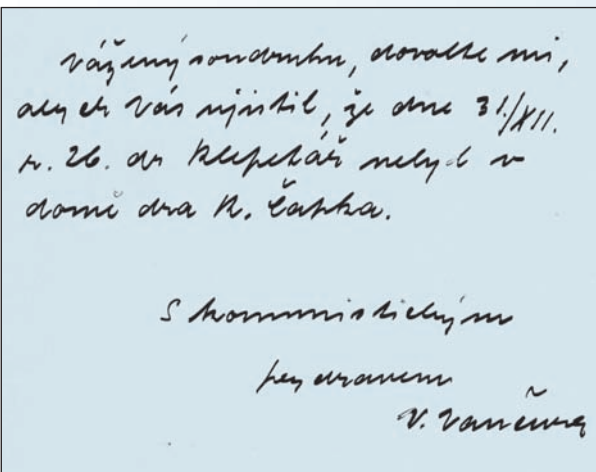 Vážený soudruhu, dovolte mi,
abych Vás ujistil, že dne 31./XII.
r. 26. dr Klepetář nebyl v
domě dra K. Čapka.
S komunistickým
pozdravem
V. Vančura